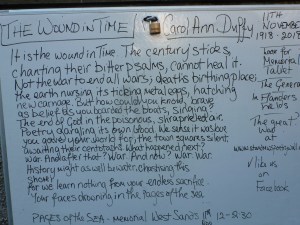 THE WOUND IN TIME CAROL ANN DUFFY
It is the wound in Time. The century's tides,
chanting their bitter psalms, cannot heal it.
Not the war to end all wars; deaths birthing place;
the earth nursing its ticking metal eggs, hatching
new carnage. But how could you know, brave
as belief as you boarded the boats, singing?
The end of God in the poisonous, shrapneled air.
Poetry gargling its own blood. We sense it was love
you gave your world for; the town squares silent,
awaiting their cenotaphs. What happened next?
War. And after that? War. And now? War. War.
History might as well be water, chastising this
shore;
for we learn nothing from your endless sacrifice
Your faces drowning in the pages of the sea
PAGES OF THE SEA - MEMORIAL West Sands 11th 12-2.30
11TH
NOVEMBER
1918-2018
Look for
Memorial
Tablet
The General
Flanders
Fields
The great?
War
like us
on
Facebook